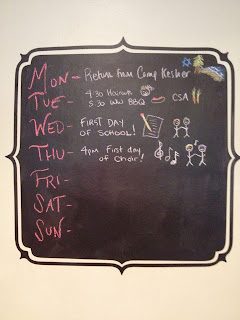 MON- Return from Camp Kesher
TUE- 4:30 Haircuts
5:30 WW BBQ CSA
WED- FIRST DAY
OF SCHOOL!
THU- 4pm First day
of Choir!
FRI-
SAT-
SUN-